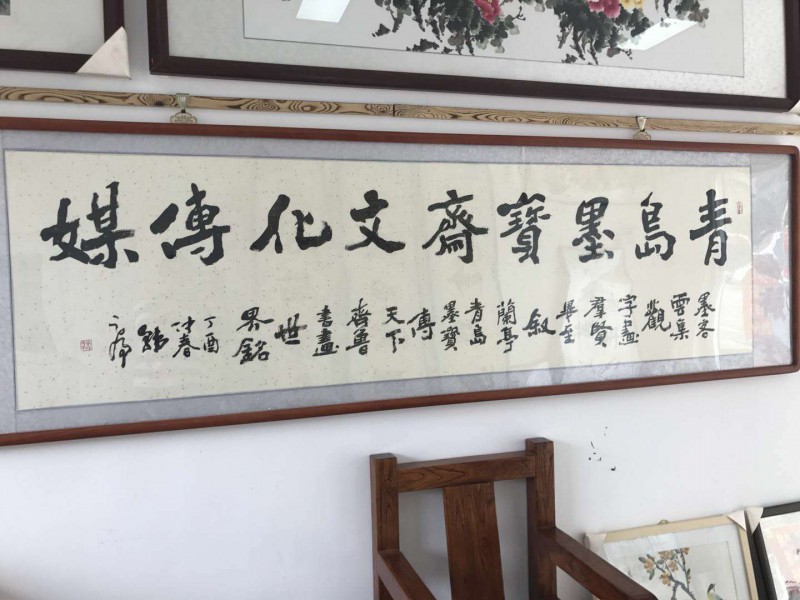 青島墨寶齋文化傳媒
墨客
雲集
觀
字畫
羣賢
畢至
敘
蘭亭
青島
墨寶
傳
天下
齊魯
書畫
世
界銘
丁酉
仲春